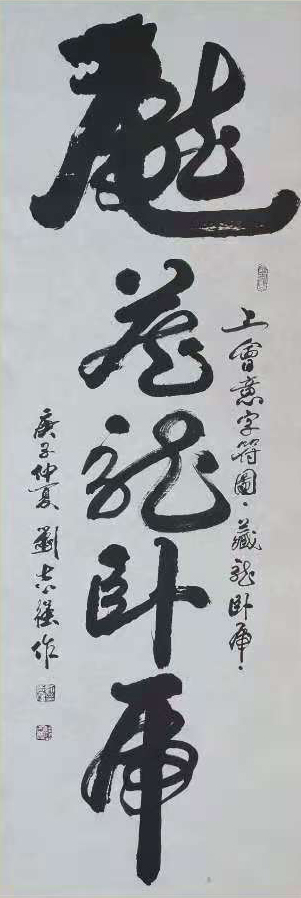 藏龍卧虎
上會意字符圖·藏龍卧虎·
庚子仲夏 劉 作